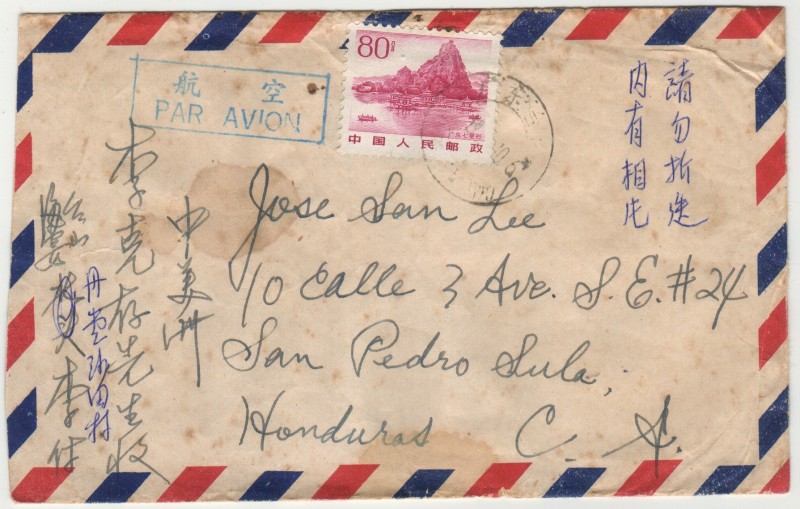 航 空
PAR AVION
80分
中国人民邮政
請勿折迭
内有相片
Jose San Lee
10 Calle 3 Ave. S.E. #24
San Pedro Sula,
Honduras C. A.
中美洲
李克存先生收
台山
丹堂沙田村
李